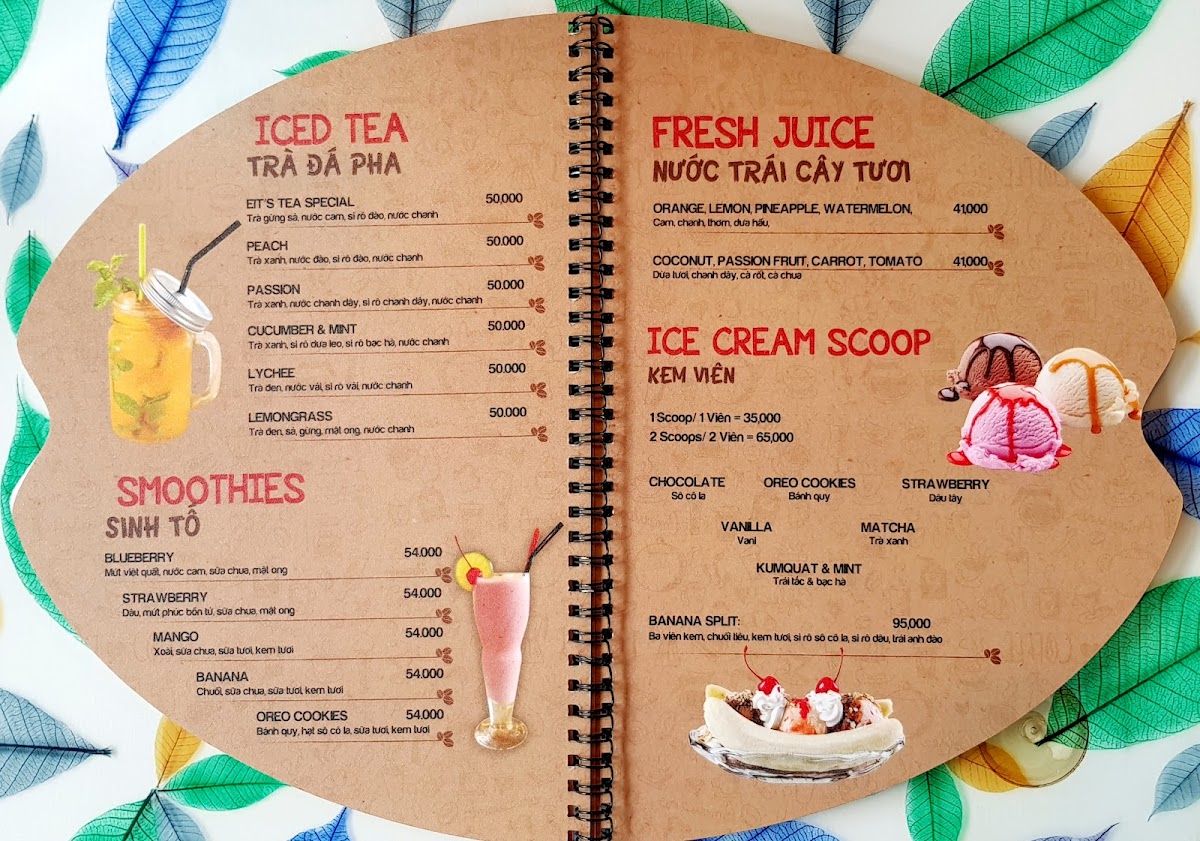 ICED TEA
TRÀ ĐÁ PHA
EIT'S TEA SPECIAL 50,000
Trà gừng sả, nước cam, si rô đào, nước chanh
PEACH 50.000
Trà xanh, nước đào, si rô đào, nước chanh
PASSION 50.000
Trà xanh, nước chanh dây, si rô chanh dây, nước chanh
CUCUMBER & MINT 50.000
Trà xanh, si rô dưa leo, si rô bạc hà, nước chanh
LYCHEE 50.000
Trà đen, nước vải, si rô vải, nước chanh
LEMONGRASS 50.000
Trà đen, sả, gừng, mật ong, nước chanh
SMOOTHIES
SINH TỐ
BLUEBERRY 54.000
Mứt việt quất, nước cam, sữa chua, mật ong
STRAWBERRY 54.000
Dâu, mứt phúc bồn tử, sữa chua, mật ong
MANGO 54.000
Xoài, sữa chua, sữa tươi, kem tươi
BANANA 54.000
Chuối, sữa chua, sữa tươi, kem tươi
OREO COOKIES 54.000
Bánh quy, hạt sô cô la, sữa tươi, kem tươi
FRESH JUICE
NƯỚC TRÁI CÂY TƯƠI
ORANGE, LEMON, PINEAPPLE, WATERMELON, 41,000
Cam, chanh, thơm, dưa hấu,
COCONUT, PASSION FRUIT, CARROT, TOMATO 41,000
Dừa tươi, chanh dây, cà rốt, cà chua
ICE CREAM SCOOP
KEM VIÊN
1 Scoop/ 1 Viên = 35,000
2 Scoops/ 2 Viên = 65,000
CHOCOLATE OREO COOKIES STRAWBERRY
Sô cô la Bánh quy Dâu tây
VANILLA MATCHA
Vani Trà xanh
KUMQUAT & MINT
Trái tắc & bạc hà
BANANA SPLIT: 95,000
Ba viên kem, chuối tiêu, kem tươi, si rô sô cô la, si rô dâu, trái anh đào